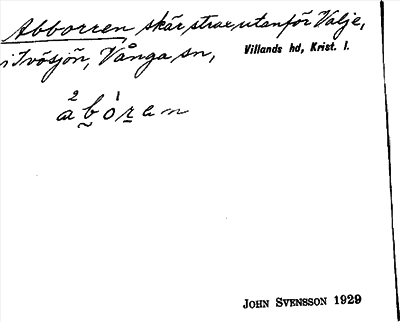 Abborren, skär strax utanför Valje,
i Ivösjön, Vånga sn, Villands hd, Krist. l.
2 1
abóren
JOHN SVENSSON 1929